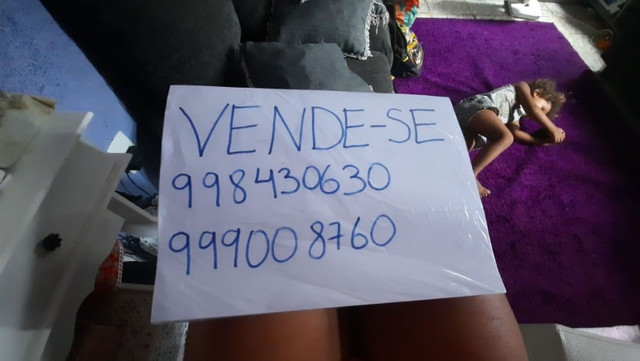 VENDE-SE
998430630
999008760